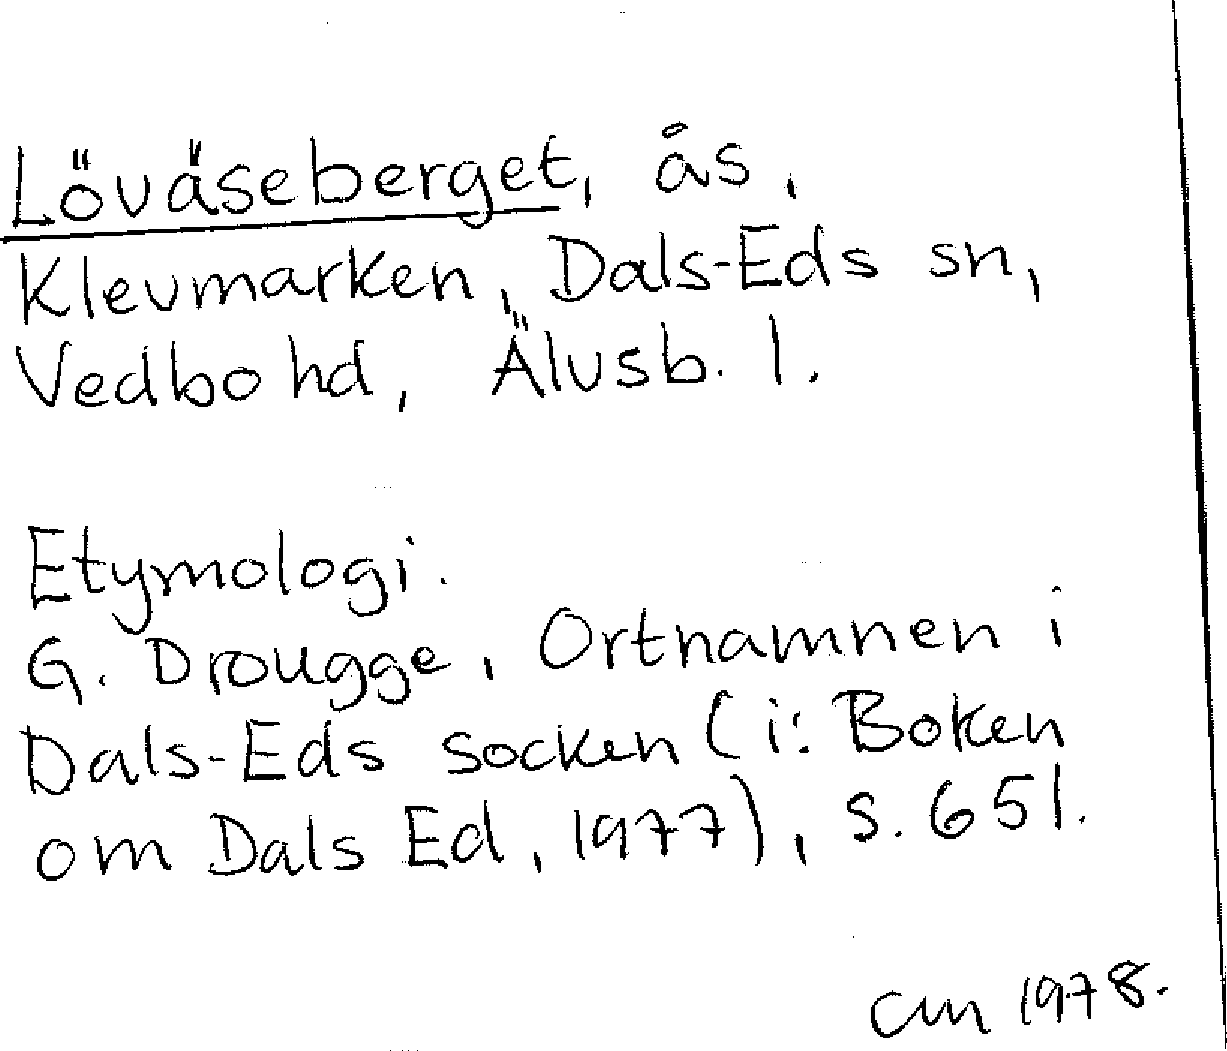 Löväseberget, ås,
Klevmarken, Dals-Eds sn,
Vedbo hd, Älvsb. l.
Etymologi.
G. Drougge, Ortnamnen i
Dals-Eds socken (i: Boken
om Dals Ed, 1977), s. 651.
CM 1978.